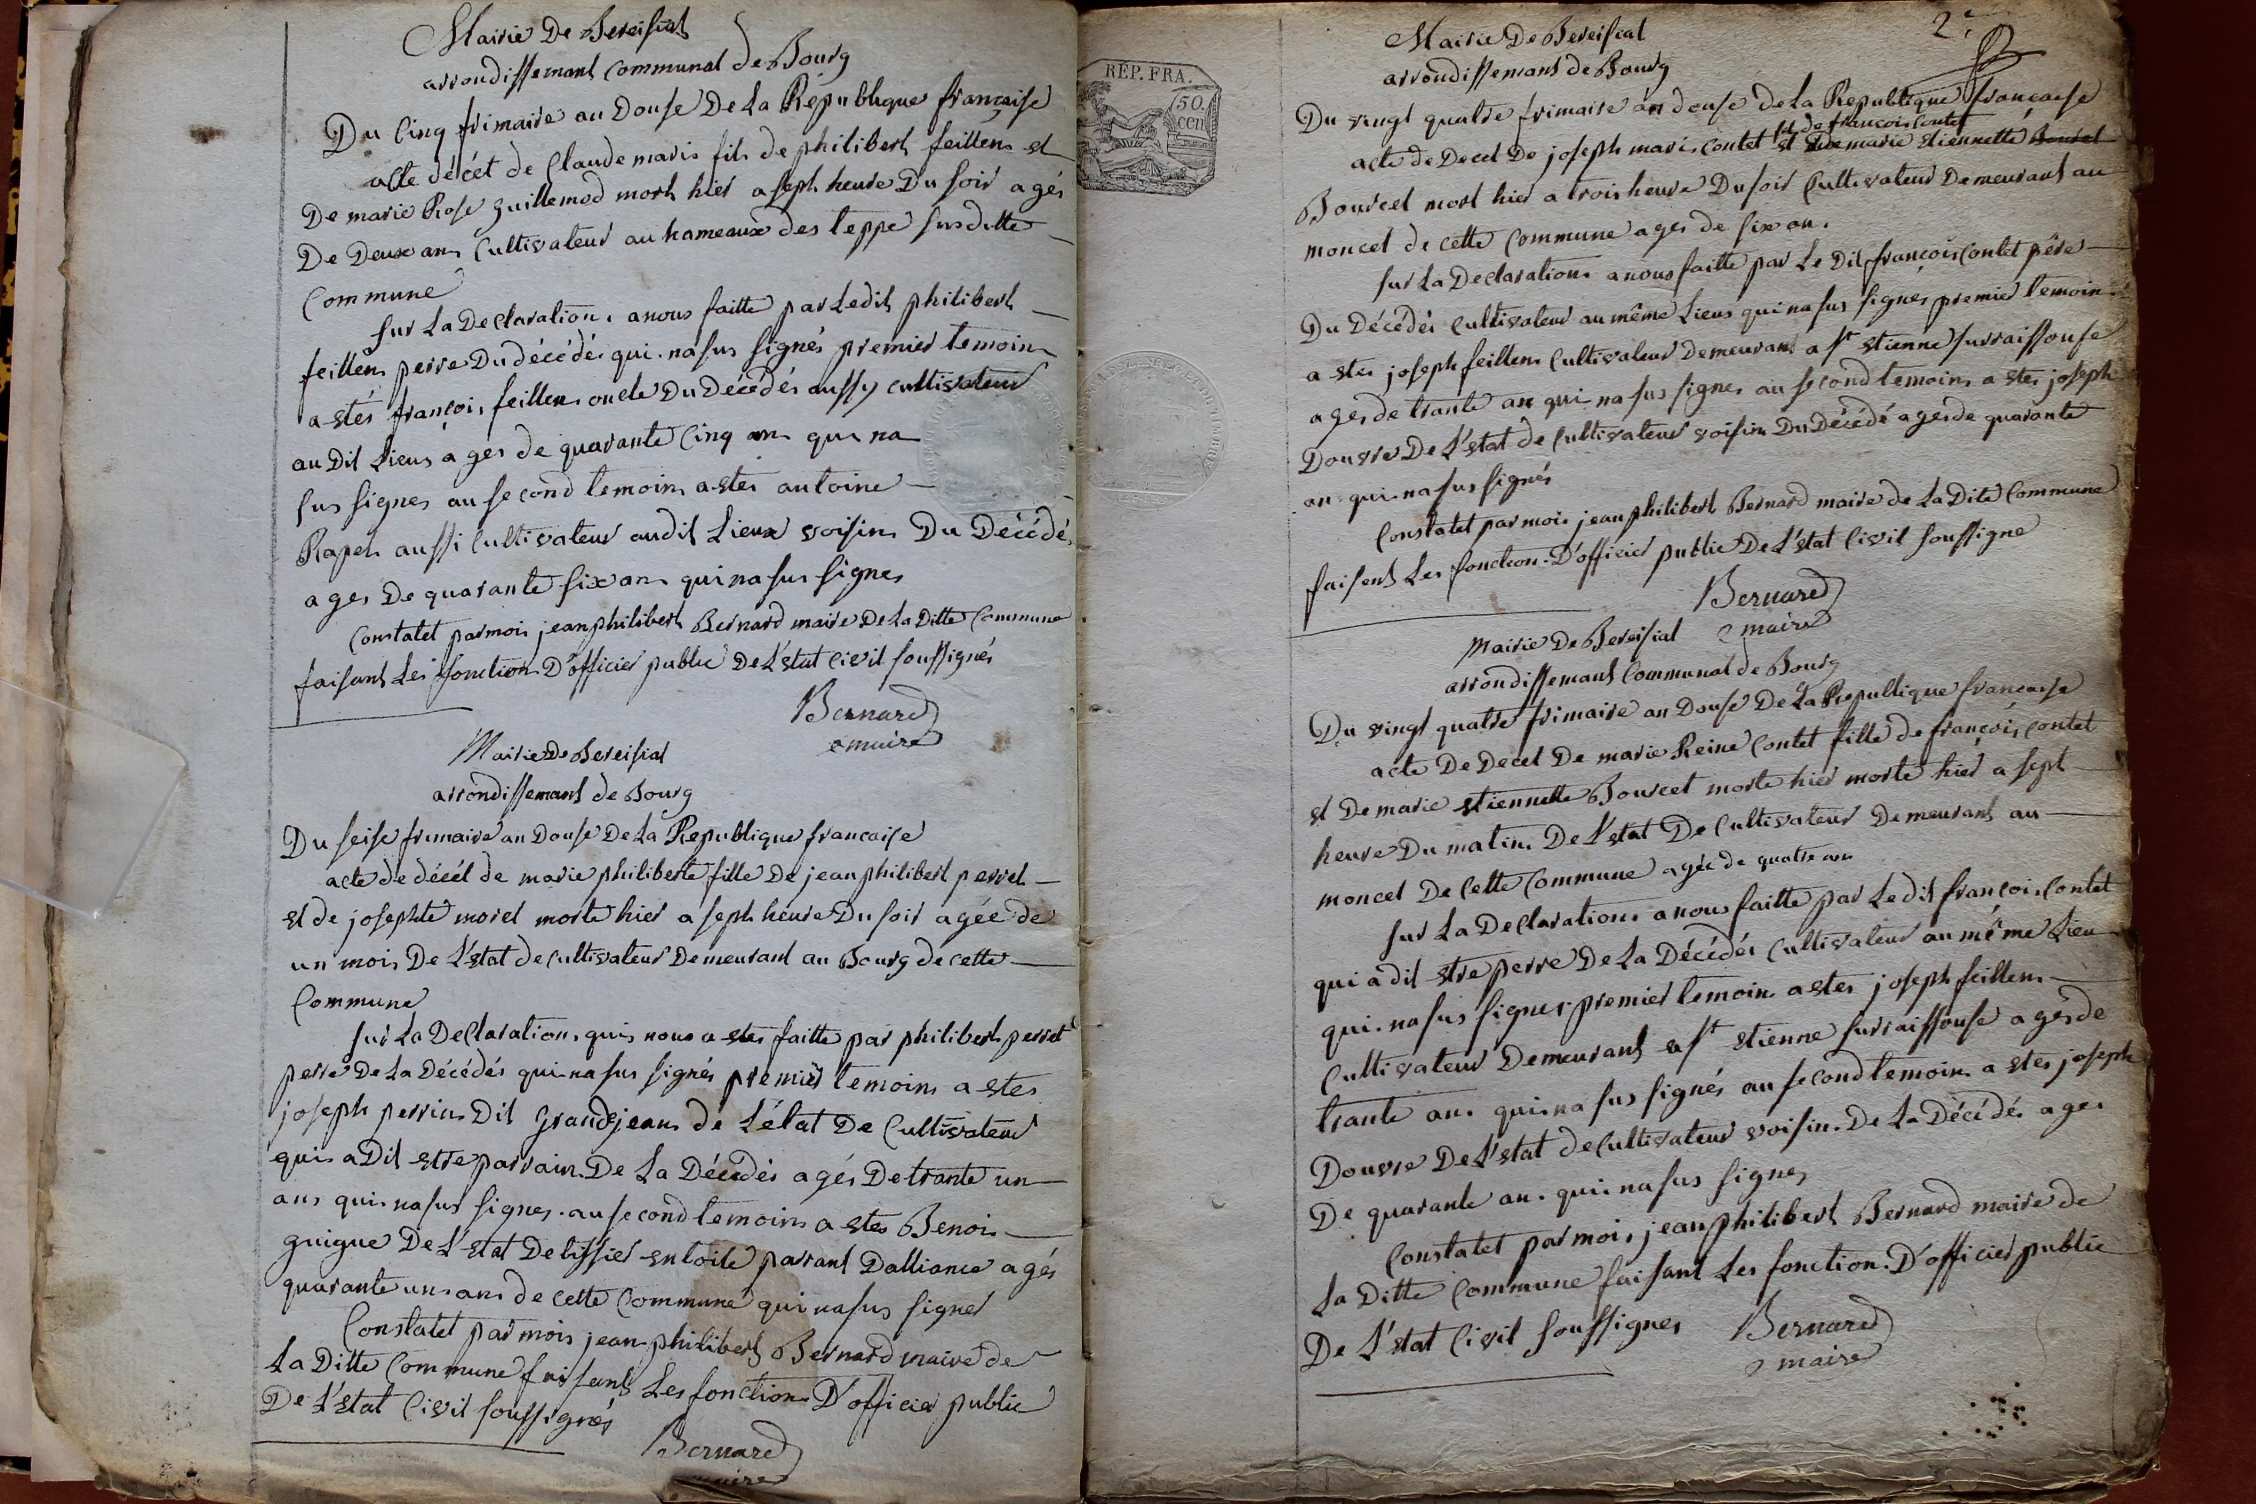 Mairie De Bereisiat
arrondissemant Communal de Bourg
Du Cinq frimaire an Douse De La République française
acte décét de Claude marie fils de philibert feillens et
De marie Rose guillemod mort hier a sept heure Du soir agés
De Deux ans Cultivateur au hameaux des teppe susditte
Commune
sur La Declaration a nous faitte par Ledit philibert
feillens perre Du décédé qui na sus signés premier temoin
a estés françois feillens oncle Du Décédés aussy cultivateur
au Dit Lieux ages de quarante Cinq ans qui na
sus signes au second temoins a estes antoine
Rapet aussi Cultivateur audit Lieux voisin Du Décédé
ages De quarante six ans qui na sus signes
Constatet par moi jean philibert Bernard maire De La Ditte Commune
faisant Les fonction D'officier public De L'état Civil soussignés
Bernard
maire
Mairie De Bereisiat
arrondissemant de Bourg
Du seise frimaire an Douse De La Republique francaise
acte de décét de marie philiberte fille De jean philibert perret
et de josephte moret morte hier a sept heure Du soir agée de
un mois De L'état de Cultivateur Demeurant au Bourg de cette
Commune
sur La Declaration qui nous a estes faitte par philibert perret
perre De La Décédés qui na sus signés premier temoins a estes
joseph perrin Dit grandjean de L'état De Cultivateur
qui a Dit estre parrain De La Décédés agés De trante un
ans qui na sus signes au second temoins a estes Benoi
guigue De L'état De tissier en toile parant D'alliance agés
quarante un ans de cette Commune qui na sus signer
Constatet par moi jean philibert Bernard maire de
La Ditte Commune faisant Les fonction D'officier public
De L'état Civil soussignés
Bernard
maire
2e
REP. FRA.
50. cen
Mairie De Bereisiat
arrondissemant de Bourg
Du vingt quatre frimaire an douse de La Republique francaise
fil de francois Contet
acte de Decet De joseph marie Contet et de marie etiennette Bourcet
Bourcet mort hier a trois heure Du soir Cultivateur Demeurant au
moncet de cette Commune ages de six an.
sur La Declaration a nous faitte par Le Dit françois Contet père
Du Décédés Cultivateur au même Lieux qui na sus signes premier temoin
a estes joseph feillens Cultivateur Demeurant a St etienne sur raissouse
ages de trante an qui na sus signes au second temoins a estes joseph
Douvre De L'état de Cultivateur voisin Du Décédé agés de quarante
an qui na sus signés
Constatet par moi jean philibert Bernard maire de La Dite Commune
faisent Les fonction D'officier public De L'état Civil soussigne
Bernard
maire
Mairie De Bereisiat
arrondissemant Communal de Bourg
Du vingt quatre frimaire an Douse De La Republique francaise
acte De Decet De marie Reine Contet fille de françois Contet
et De marie etiennette Bourcet morte hier morte hier a sept
heure Du matin De L'état De Cultivateur Demeurant au
moncet De Cette Commune agée de quatre ans
sur La Declaration a nous faitte par Ledit françois Contet
qui a dit estre perre De La Décédés Cultivateur au même Lieu
qui na sus signer premier temoin a estes joseph feillens
Cultivateur Demeurant a St etienne sur raissouse agés de
trante an qui na sus signés au second temoin a estes joseph
Douvre De L'état de Cultivateur voisin De La Décédés ages
De quarante an qui na sus signes
Constatet par moi jean philibert Bernard maire de
La Ditte Commune faisant Les fonction D'officier public
De L'état Civil soussignes
Bernard
maire